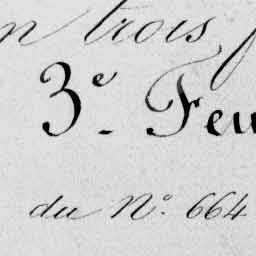 n trois
3e. Feu
du No. 664